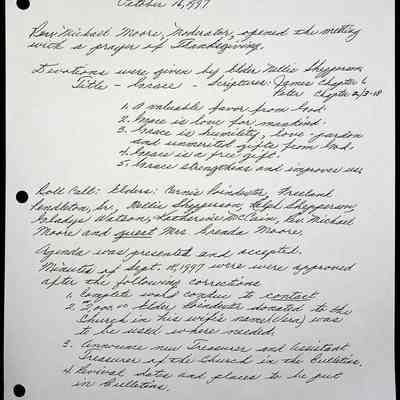 October 16, 1997
Rev. Michael Moore, Moderator, opened the meeting
with a prayer of Thanksgiving.
Devotions were given by Elder Nellie Shepperson
Title - Grace - Scripture: James Chapter 6
Peter Chapter 2/3-18
1. A valuable favor from God.
2. Grace is love for mankind.
3. Grace is humility, love - pardon
and unmerited gifts from God.
4. Grace is a free gift.
5. Grace strengthens and improves us
Roll Call: Elders: Poindexter, Freeland
Pendleton, Sr., Nellie Shepperson, Ralph Shepperson,
Gladys Watson, Katherine McCain, Rev. Michael
Moore and guest Mrs. Brenda Moore.
Agenda was presented and accepted.
Minutes of Sept. 18, 1997 were were approved
after the following corrections
1. Complete word to contact
2. Elder Poindexter donated to the
Church in his wife's name (Vera) was
to be used where needed.
3. Announce new Treasurer and Assistant
Treasurer of the Church in the Bulletin.
4. Revival dates and places to be put
in Bulletins.